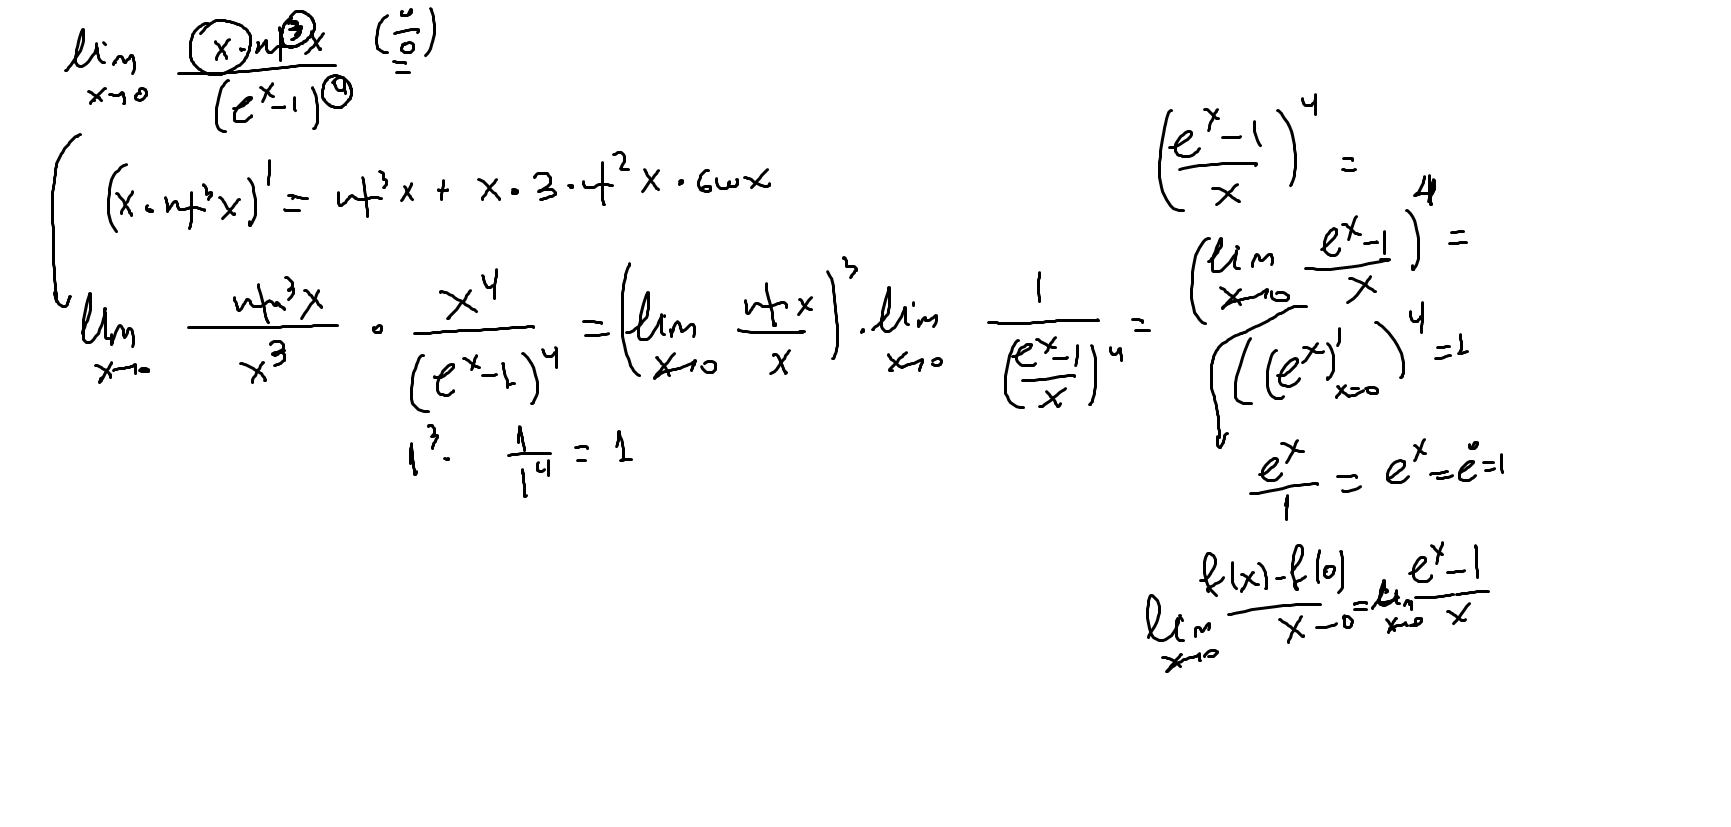 lim x→0 (x·ημ³x)/(eˣ-1)⁴ (0/0) =
(x·ημ³x)' = ημ³x + x·3·ημ²x·συνx
lim x→0 ημ³x/x³ · x⁴/(eˣ-1)⁴ = (lim x→0 ημx/x)³ · lim x→0 1/((eˣ-1)/x)⁴ =
1³· 1/1⁴ = 1
((eˣ-1)/x)⁴ =
(lim x→0 (eˣ-1)/x)⁴ =
((eˣ)' x=0)⁴ = 1
eˣ/1 = eˣ = e⁰ = 1
lim x→0 (f(x)-f(0))/(x-0) = lim x→0 (eˣ-1)/x